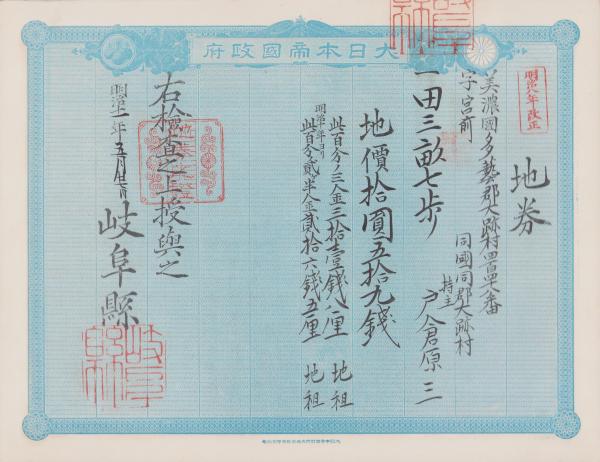 大日本帝國政府
明治八年改正
地券
美濃國多藝郡大跡村四百四十七番
字宮前
同國同郡大跡村
持主 戸倉原三
一田三畝七歩
地價拾圓五拾九錢
此百分ノ三金三拾壹錢八厘 地租
明治十年ヨリ
此百分ノ貳半金貳拾六錢五厘 地租
右檢査之上授與之
明治十一年五月
岐阜縣